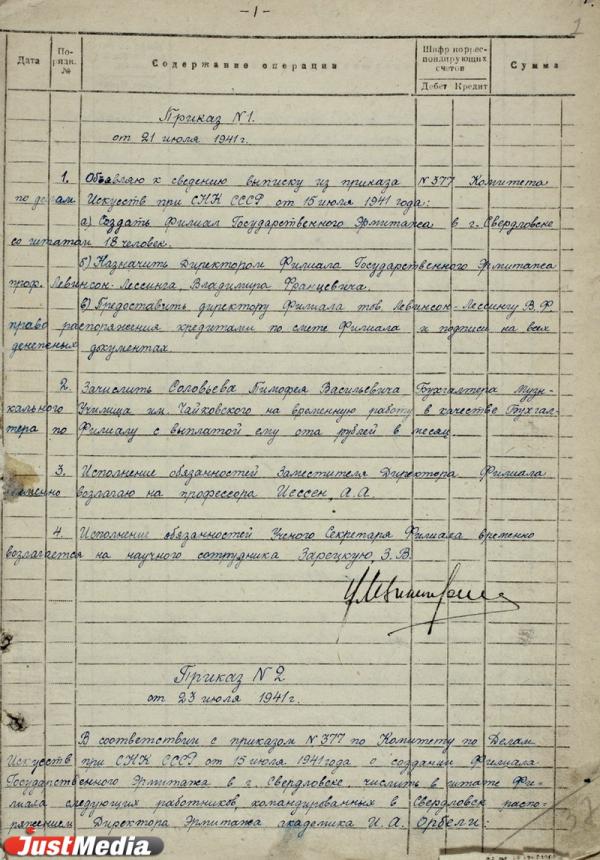 -1-
Дата
По-
рядк.
№
Содержание операции
Шифр коррес-
пондирующих
счетов
Дебет Кредит
Сумма
Приказ N 1.
от 21 июля 1941 г.
1. Объявляю к сведению выписку из приказа N 377 Комитета
по делам Искусств при СНК СССР от 15 июля 1941 года:
а) Создать Филиал Государственного Эрмитажа в г. Свердловске
со штатом 18 человек.
б) Назначить Директором Филиала Государственного Эрмитажа
проф. Левинсон-Лессинга, Владимира Францевича.
в) Предоставить директору Филиала тов. Левинсон-Лессингу В. Ф.
право распоряжения кредитами по смете Филиала и подписи на всех
денежных документах.
2. Зачислить Соловьева Тимофея Васильевича Бухгалтера Музы-
кального Училища им. Чайковского на временную работу в качестве Бухгал-
тера по Филиалу с выплатой ему ста рублей в месяц.
3. Исполнение обязанностей Заместителя Директора Филиала
временно возлагаю на профессора Иессен, А.А.
4. Исполнение обязанностей Ученого Секретаря Филиала временно
возлагается на научного сотрудника Зарецкую, З.В.
Приказ N 2
от 23 июля 1941 г.
В соответствии с приказом N 377 по Комитету по Делам
Искусств при СНК СССР от 15 июля 1941 года о создании Филиала
Государственного Эрмитажа в г. Свердловске, числить в штате Фи-
лиала следующих работников, командированных в Свердловск распо-
ряжением Директора Эрмитажа академика И. А. Орбели:
JustMedia